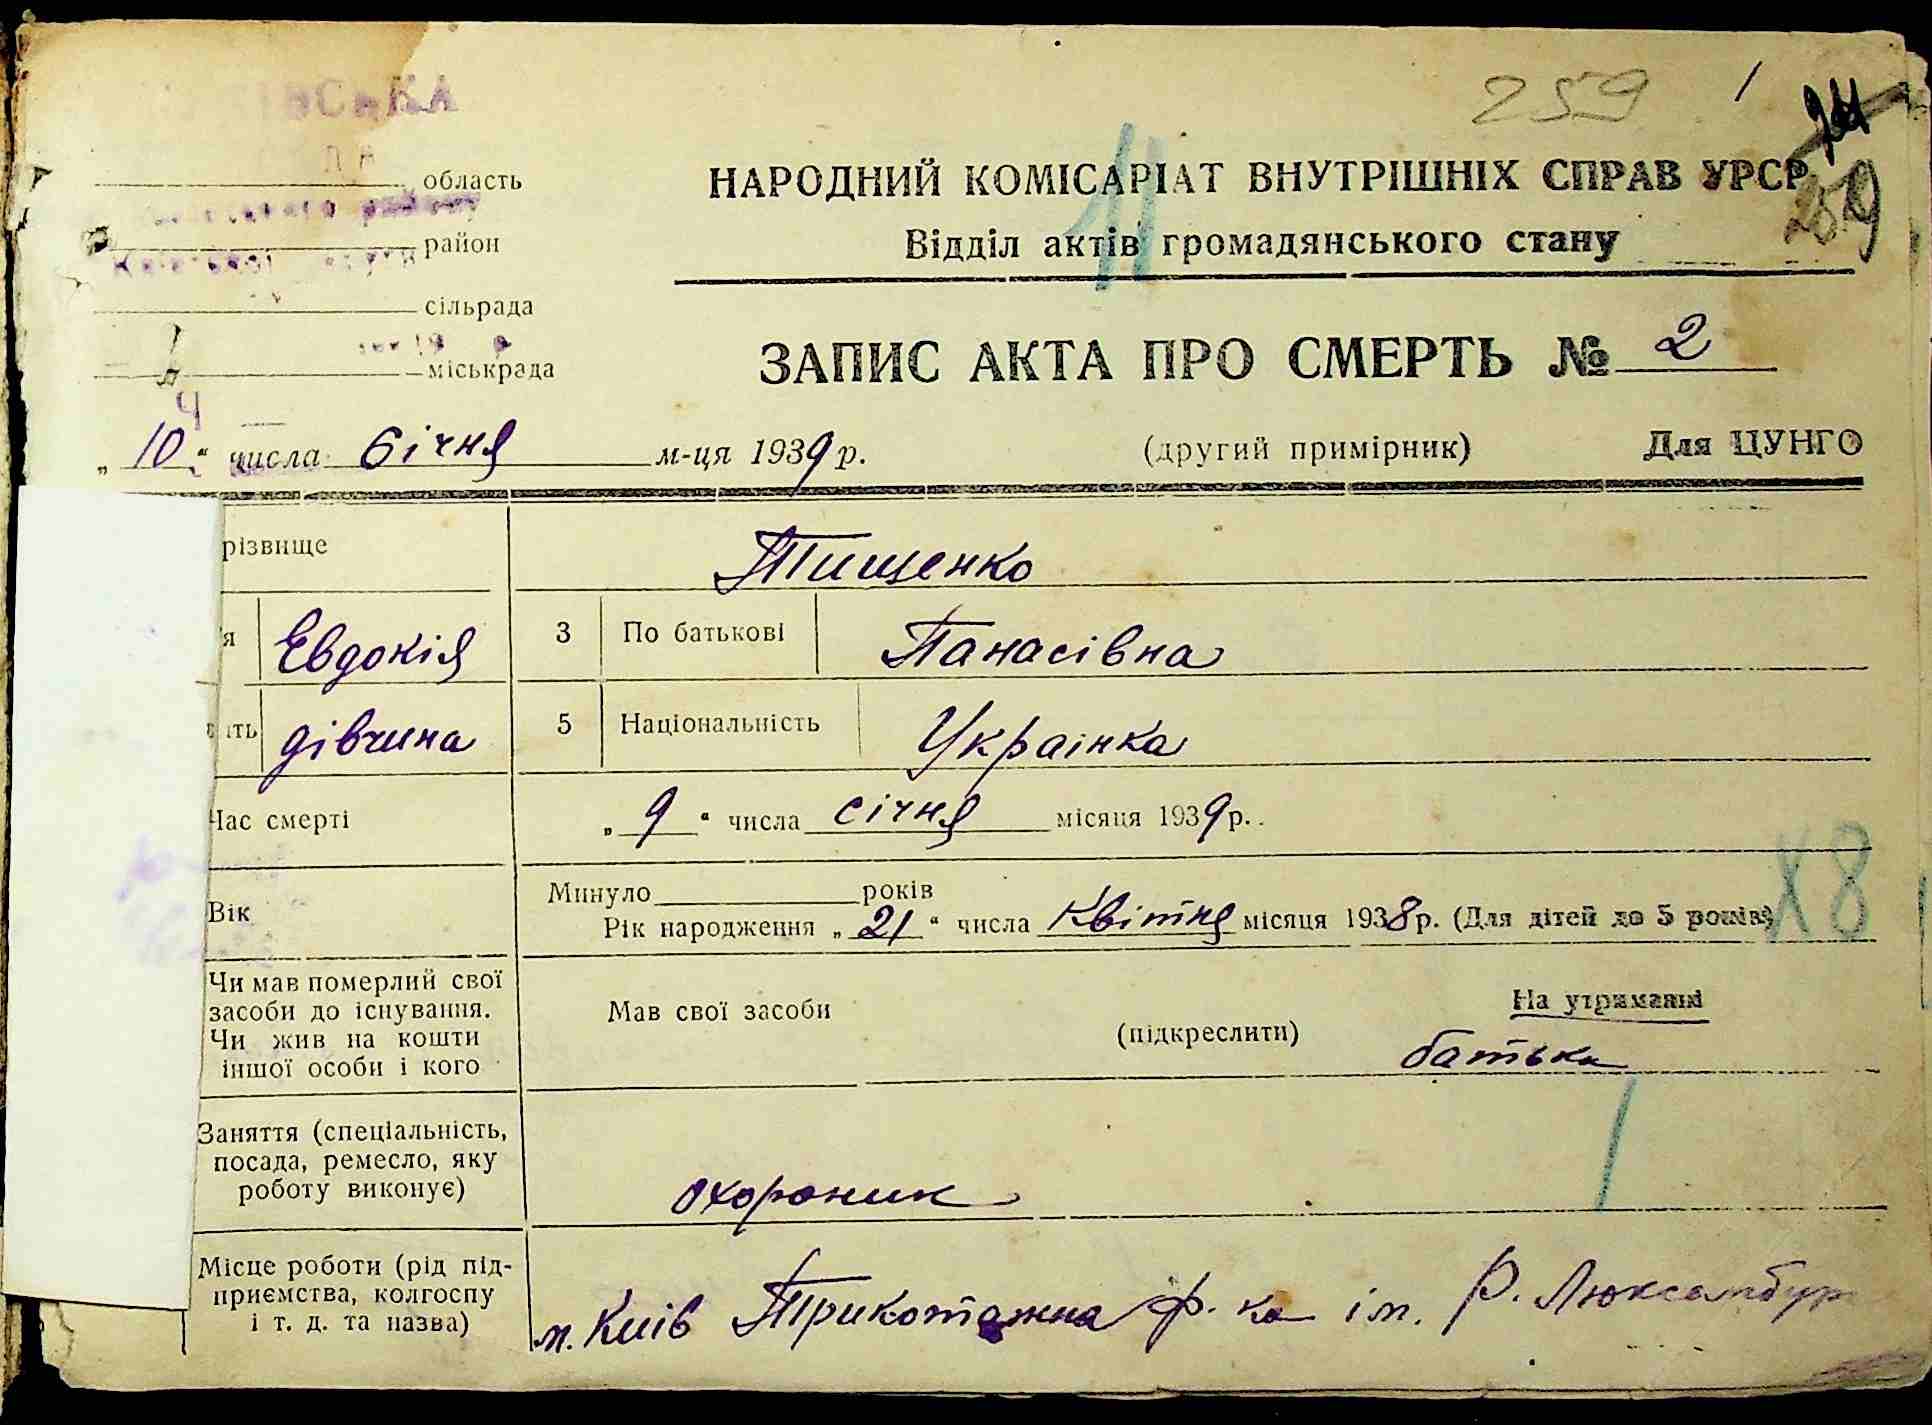 259 1
259
область
НАРОДНИЙ КОМІСАРІАТ ВНУТРІШНІХ СПРАВ УРСР
11
район
Відділ актів громадянського стану
сільрада
міськрада
ЗАПИС АКТА ПРО СМЕРТЬ № 2
„ 10 “ числа січня м-ця 1939 р. (другий примірник) Для ЦУНГО
різвище Тищенко
я Евдокія 3 По батькові Панасівна
ать дівчина 5 Національність Украінка
Час смерті „ 9 “ числа січня місяця 1939 р.
Вік Минуло років
Рік народження „ 21 “ числа квітня місяця 1938 р. (Для дітей до 5 років)
х8
Чи мав померлий свої
засоби до існування.
Чи жив на кошти
іншої особи і кого
Мав свої засоби (підкреслити) На утриманні
батька
Заняття (спеціальність,
посада, ремесло, яку
роботу виконує)
охороник
Місце роботи (рід під-
приємства, колгоспу
і т. д. та назва)
м. Киів Трикотажна ф-ка ім. Р. Люксембург